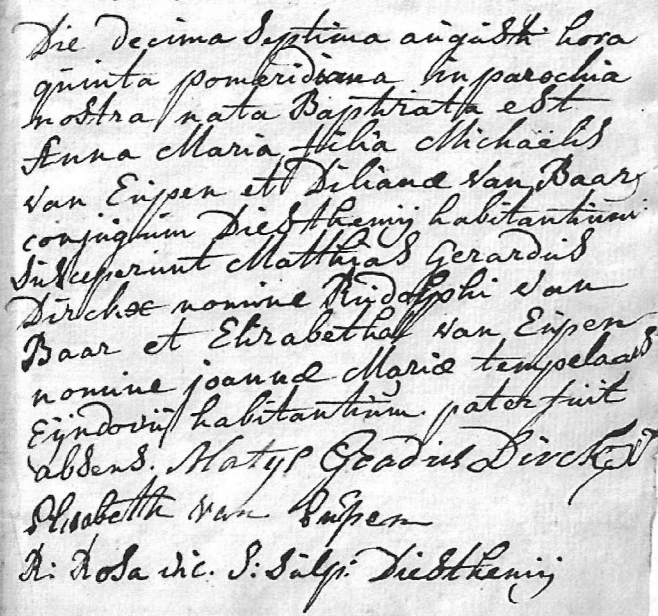 Die decima septima augusti hora
quinta pomeridiana in parochia
nostra nata Baptizata est
Anna Maria filia Michaëlis
van Eupen et Dilianæ Van Baar
conjugum Diesthemij habitantium:
Susceperunt Matthias Gerardus
Dirckx nomine Rudolphi van
Baar et Elizabetha van Eupen
nomine joannæ Mariæ tempelaars
Eijndovii habitantium. pater fuit
absens. Matys Geradus Dirckx
Elisabeth van Eupen
R: Rosa vic. S: Sulp: Diesthemij